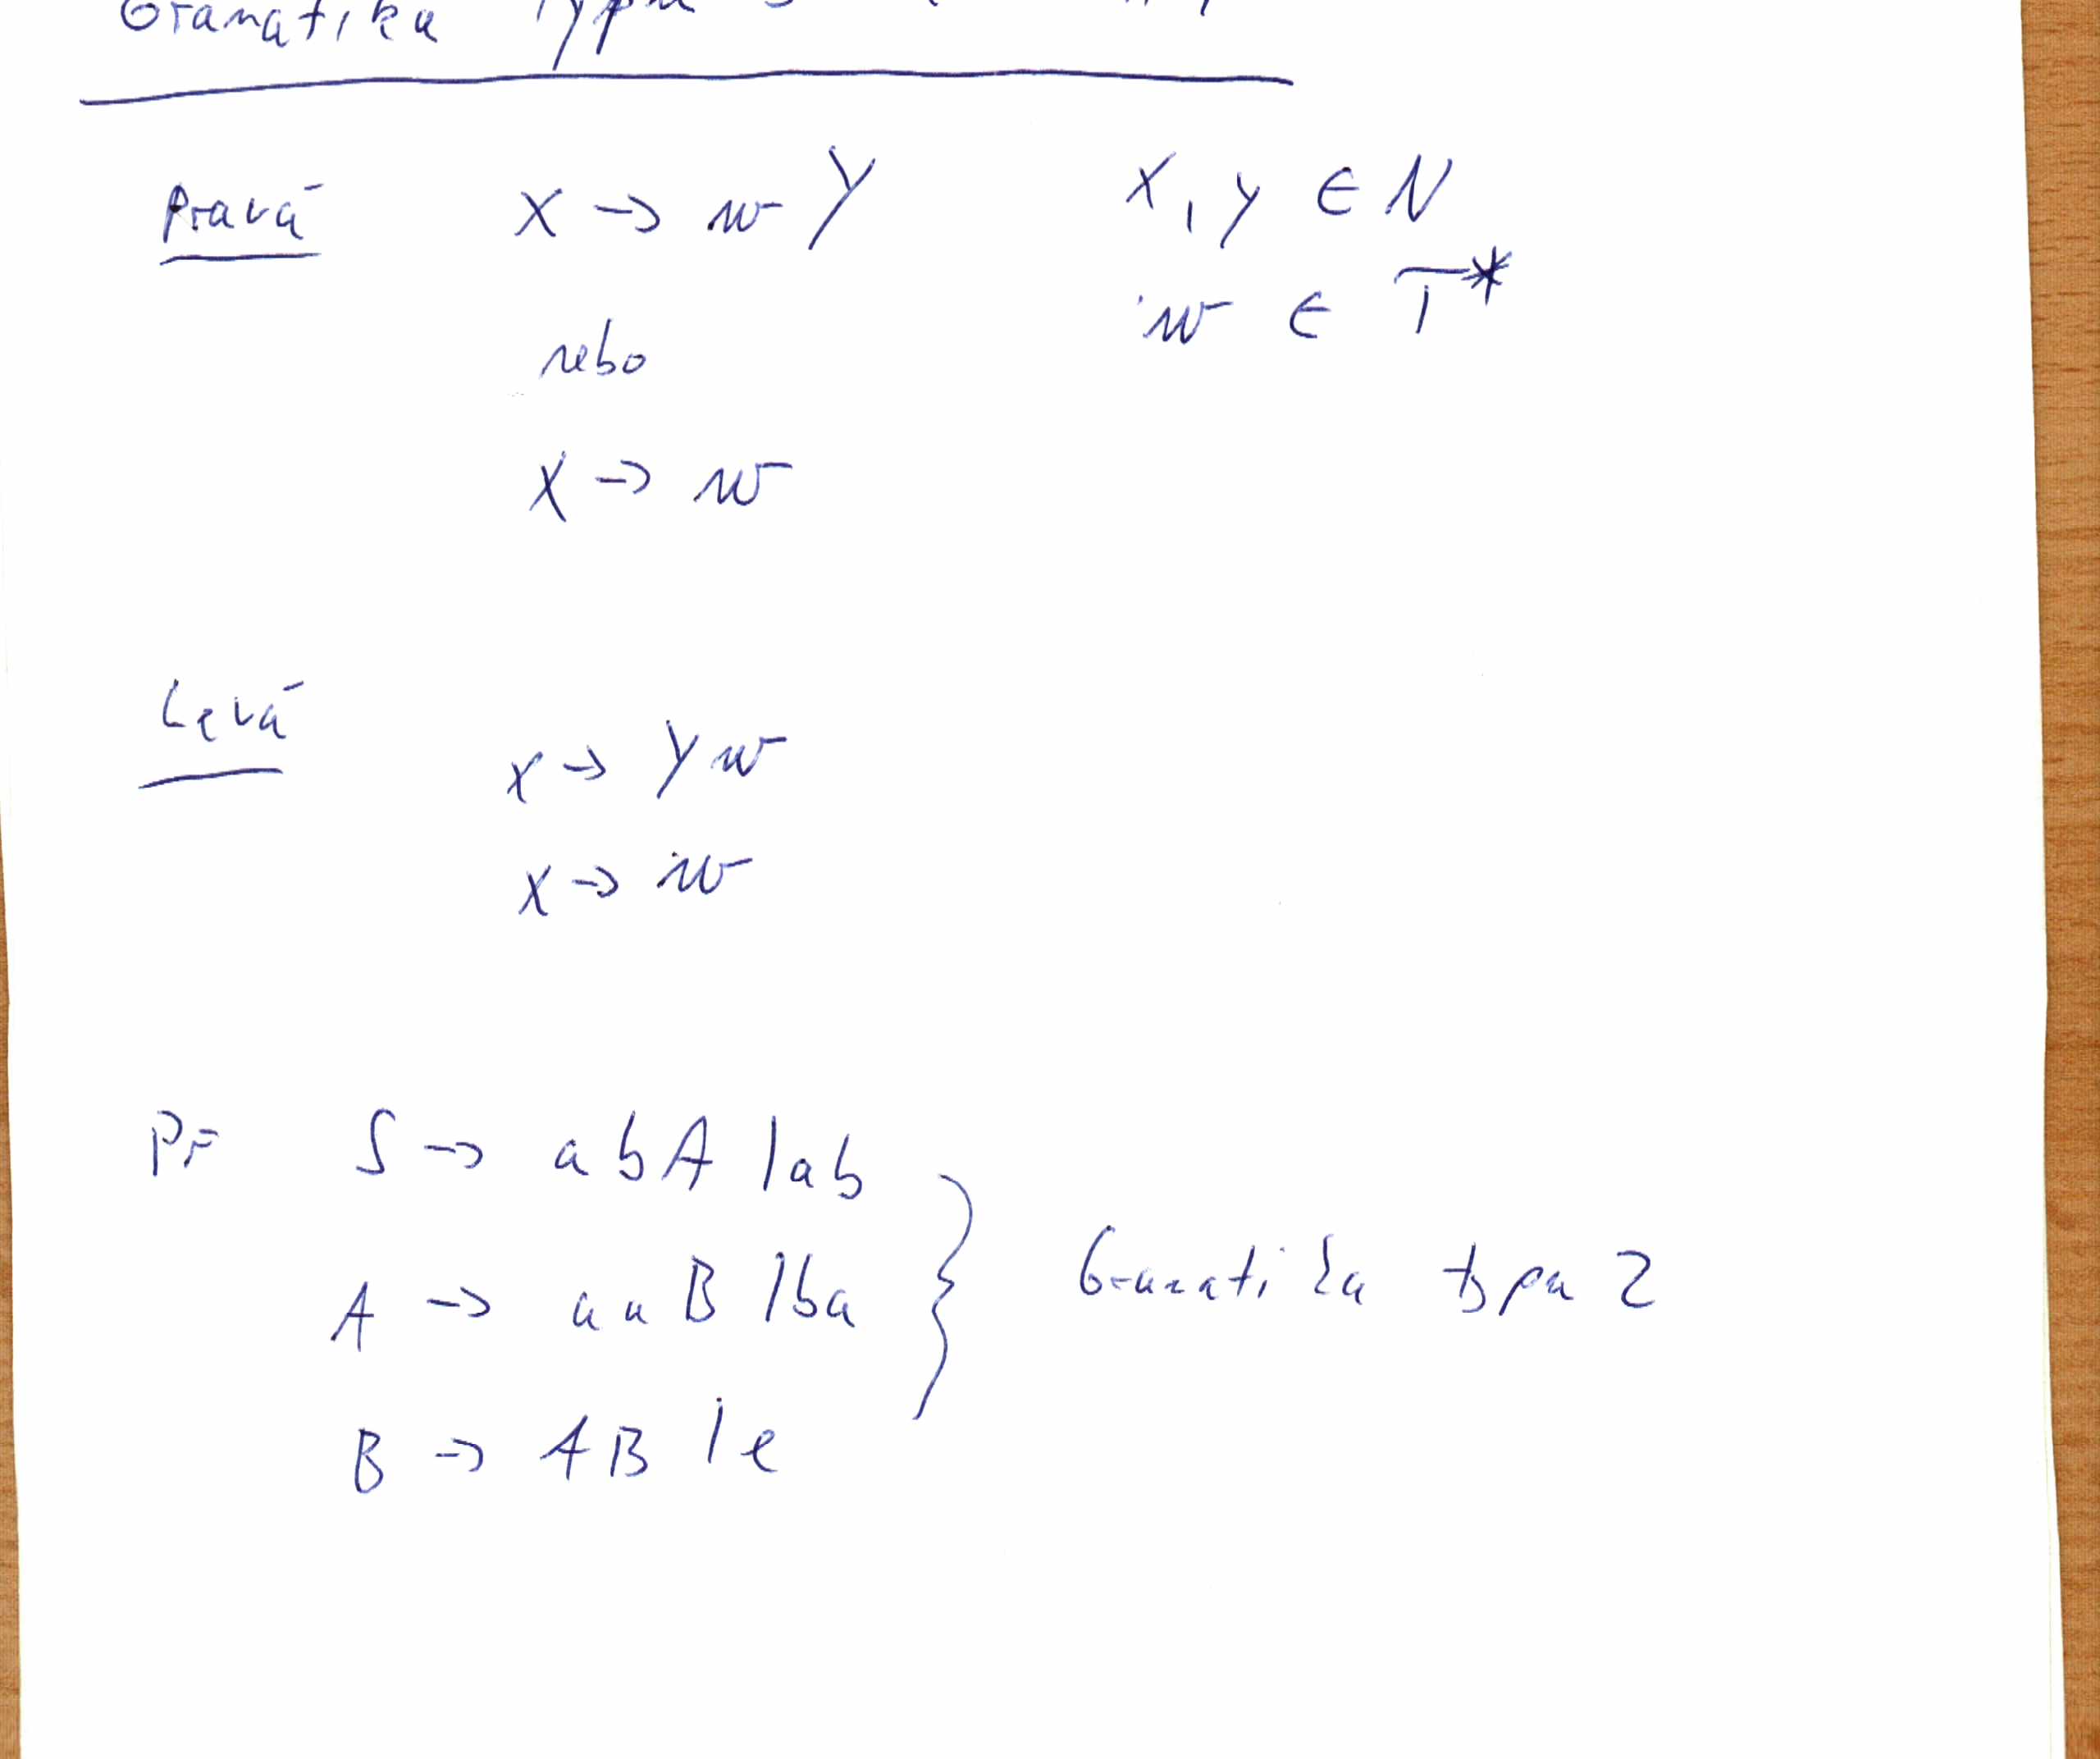 Gramatika typu
Pravá X → w Y X, Y ∈ N
nebo w ∈ T*
X → w
Levá
X → Y w
X → w
Př S → a b A | ab
A → a a B | ba
B → A B | e
Gramatika typu 2